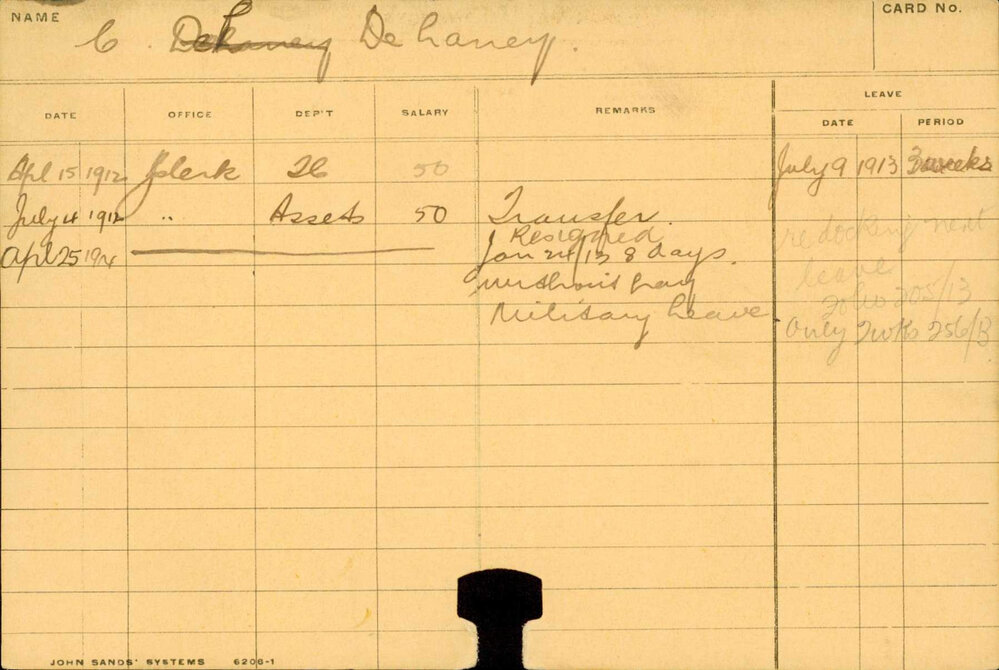 NAME
C. Dehaney Dehaney.
CARD No.
DATE OFFICE DEP'T SALARY REMARKS LEAVE
DATE PERIOD
Apl 15 1912 Jclerk 50 July 9 1913 3 weeks
July 4 1912 " Assets 50 Transfer.
Apl 25 191 Resigned
Jan 24/13 8 days.
without pay
Military Leave
re docking next
leave
folio 205/13
Only 2wks 256/13
JOHN SANDS' SYSTEMS 6206-1